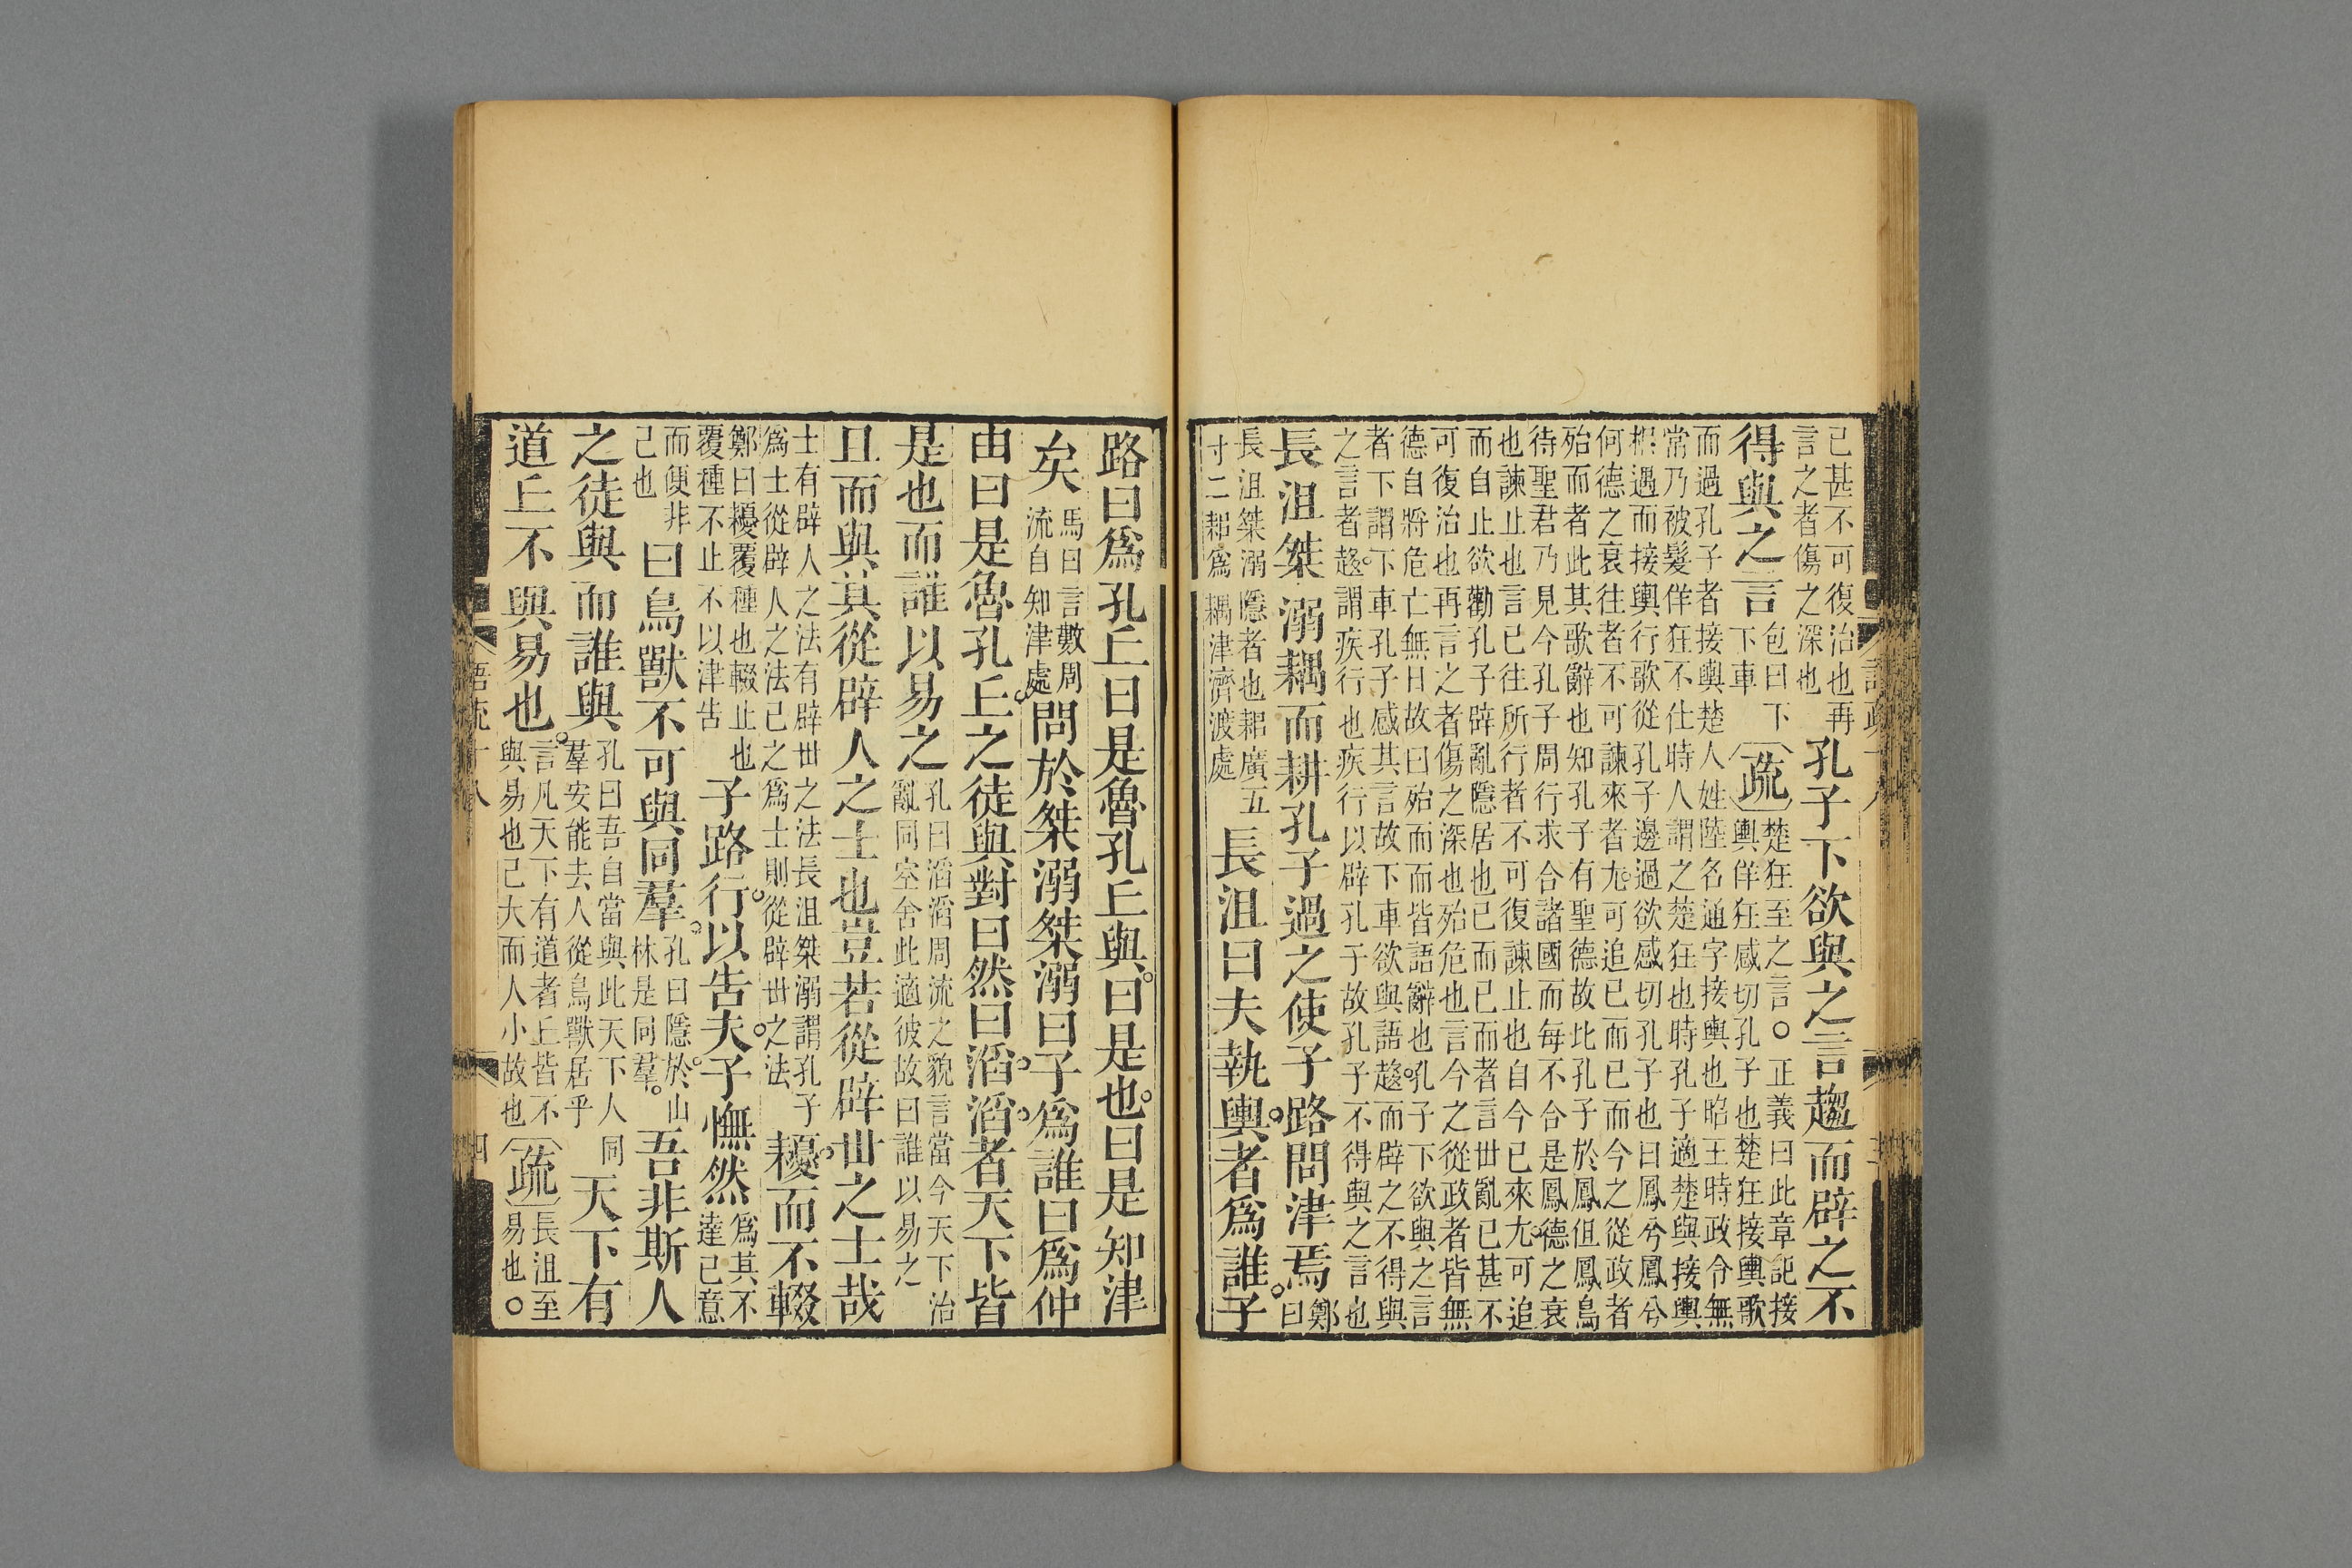 已甚不可復治也再
言之者傷之深也
孔子下欲與之言趨而辟之不
得與之言
包曰下
下車
疏
楚狂至之言○正義曰此章記接
輿佯狂感切孔子也楚狂接輿歌
而過孔子者接輿楚人姓陸名通字接輿也昭王時政令無
常乃被髮佯狂不仕時人謂之楚狂也時孔子適楚與接輿
相遇而接輿行歌從孔子邊過欲感切孔子也曰鳳兮鳳兮
何德之衰往者不可諫來者尤可追已而已而今之從政者
殆而者此其歌辭也知孔子有聖德故比孔子於鳳但鳳鳥
待聖君乃見今孔子周行求合諸國而每不合是鳳德之衰
也諫止也言已往所行者不可復諫止也自今已來尤可追
而自止欲勸孔子辟亂隱居也已而已而者言世亂已甚不
可復治也再言之者傷之深也殆危也言今之從政者皆無
德自將危亡無日故曰殆而而皆語辭也孔子下欲與之言
者下謂下車孔子感其言故下車欲與語趨而辟之不得與
之言者趨謂疾行也疾行以辟孔子故孔子不得與之言也
長沮桀溺耦而耕孔子過之使子路問津焉
鄭
曰
長沮桀溺隱者也耜廣五
寸二耜爲耦津濟渡處
長沮曰夫執輿者爲誰子
路曰爲孔丘曰是魯孔丘與曰是也曰是知津
矣
馬曰言數周
流自知津處
問於桀溺桀溺曰子爲誰曰爲仲
由曰是魯孔丘之徒與對曰然曰滔滔者天下皆
是也而誰以易之
孔曰滔滔周流之貌言當今天下治
亂同空舍此適彼故曰誰以易之
且而與其從辟人之士也豈若從辟世之士哉
士有辟人之法有辟世之法長沮桀溺謂孔子
爲士從辟人之法己之爲士則從辟世之法
耰而不輟
鄭曰耰覆種也輟止也
覆種不止不以津告
子路行以告夫子憮然
爲其不
達己意
而便非
己也
曰鳥獸不可與同羣
孔曰隱於山
林是同羣
吾非斯人
之徒與而誰與
孔曰吾自當與此天下人同
羣安能去人從鳥獸居乎
天下有
道丘不與易也
言凡天下有道者丘皆不
與易也己大而人小故也
疏
長沮至
易也○